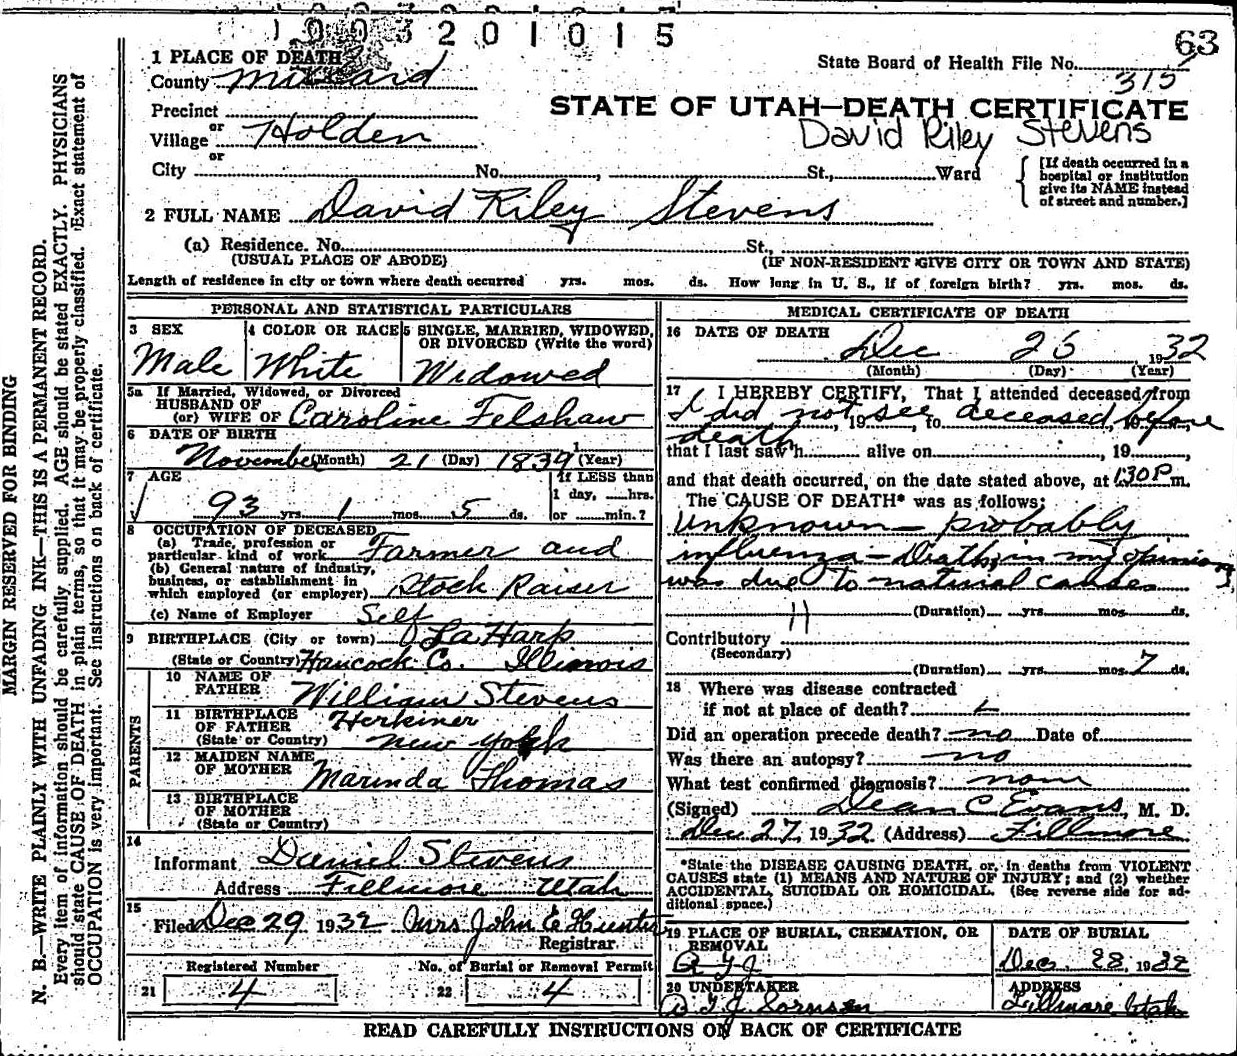 1003201015
63
1 PLACE OF DEATH
County Millard
State Board of Health File No. 315
Precinct
STATE OF UTAH—DEATH CERTIFICATE
or
Village Holden
David Riley Stevens
or
City No. , St., Ward
[If death occurred in a hospital or institution give its NAME instead of street and number.]
2 FULL NAME David Riley Stevens
(a) Residence. No. St.,
(USUAL PLACE OF ABODE) (IF NON-RESIDENT GIVE CITY OR TOWN AND STATE)
Length of residence in city or town where death occurred yrs. mos. ds. How long in U. S., if of foreign birth? yrs. mos. ds.
PERSONAL AND STATISTICAL PARTICULARS
3 SEX
Male
4 COLOR OR RACE
White
5 SINGLE, MARRIED, WIDOWED, OR DIVORCED (Write the word)
Widowed
5a If Married, Widowed, or Divorced
HUSBAND OF
(or) WIFE OF Caroline Felshaw
6 DATE OF BIRTH
November (Month) 21 (Day) 1839 (Year)
7 AGE
93 yrs. 1 mos. 5 ds.
If LESS than
1 day, hrs.
or min.?
8 OCCUPATION OF DECEASED
(a) Trade, profession or
particular kind of work Farmer and
(b) General nature of industry,
business, or establishment in
which employed (or employer) Stock Raiser
(c) Name of Employer Self
9 BIRTHPLACE (City or town) La Harp
(State or Country) Hancock Co. Illinois
PARENTS
10 NAME OF
FATHER William Stevens
11 BIRTHPLACE
OF FATHER Herkimer
(State or Country) New York
12 MAIDEN NAME
OF MOTHER Marinda Thomas
13 BIRTHPLACE
OF MOTHER
(State or Country)
14
Informant Daniel Stevens
Address Fillmore Utah
15
Filed Dec 29 1932 Mrs John E Hunter
Registrar
Registered Number
21 4
No. of Burial or Removal Permit
22 4
MEDICAL CERTIFICATE OF DEATH
16 DATE OF DEATH
Dec 26, 1932
(Month) (Day) (Year)
17 I HEREBY CERTIFY, That I attended deceased from
I did not see deceased before
, 19 , to , 19 ,
death
that I last saw h alive on , 19 ,
and that death occurred, on the date stated above, at 1:30 P. m.
The CAUSE OF DEATH* was as follows:
Unknown — probably
influenza — Death, in my opinion,
was due to natural causes
11 (Duration) yrs. mos. ds.
Contributory
(Secondary)
(Duration) yrs. mos. 7 ds.
18 Where was disease contracted
if not at place of death?
Did an operation precede death? no Date of
Was there an autopsy? no
What test confirmed diagnosis? none
(Signed) Dean C Evans, M. D.
Dec 27, 1932 (Address) Fillmore
*State the DISEASE CAUSING DEATH, or, in deaths from VIOLENT
CAUSES state (1) MEANS AND NATURE OF INJURY; and (2) whether
ACCIDENTAL, SUICIDAL OR HOMICIDAL. (See reverse side for ad-
ditional space.)
19 PLACE OF BURIAL, CREMATION, OR
REMOVAL
DATE OF BURIAL
Dec. 28, 1932
20 UNDERTAKER
ADDRESS
Fillmore Utah
READ CAREFULLY INSTRUCTIONS ON BACK OF CERTIFICATE
MARGIN RESERVED FOR BINDING
N. B.—WRITE PLAINLY WITH UNFADING INK—THIS IS A PERMANENT RECORD.
Every item of information should be carefully supplied. AGE should be stated EXACTLY. PHYSICIANS
should state CAUSE OF DEATH in plain terms, so that it may be properly classified. Exact statement of
OCCUPATION is very important. See instructions on back of certificate.